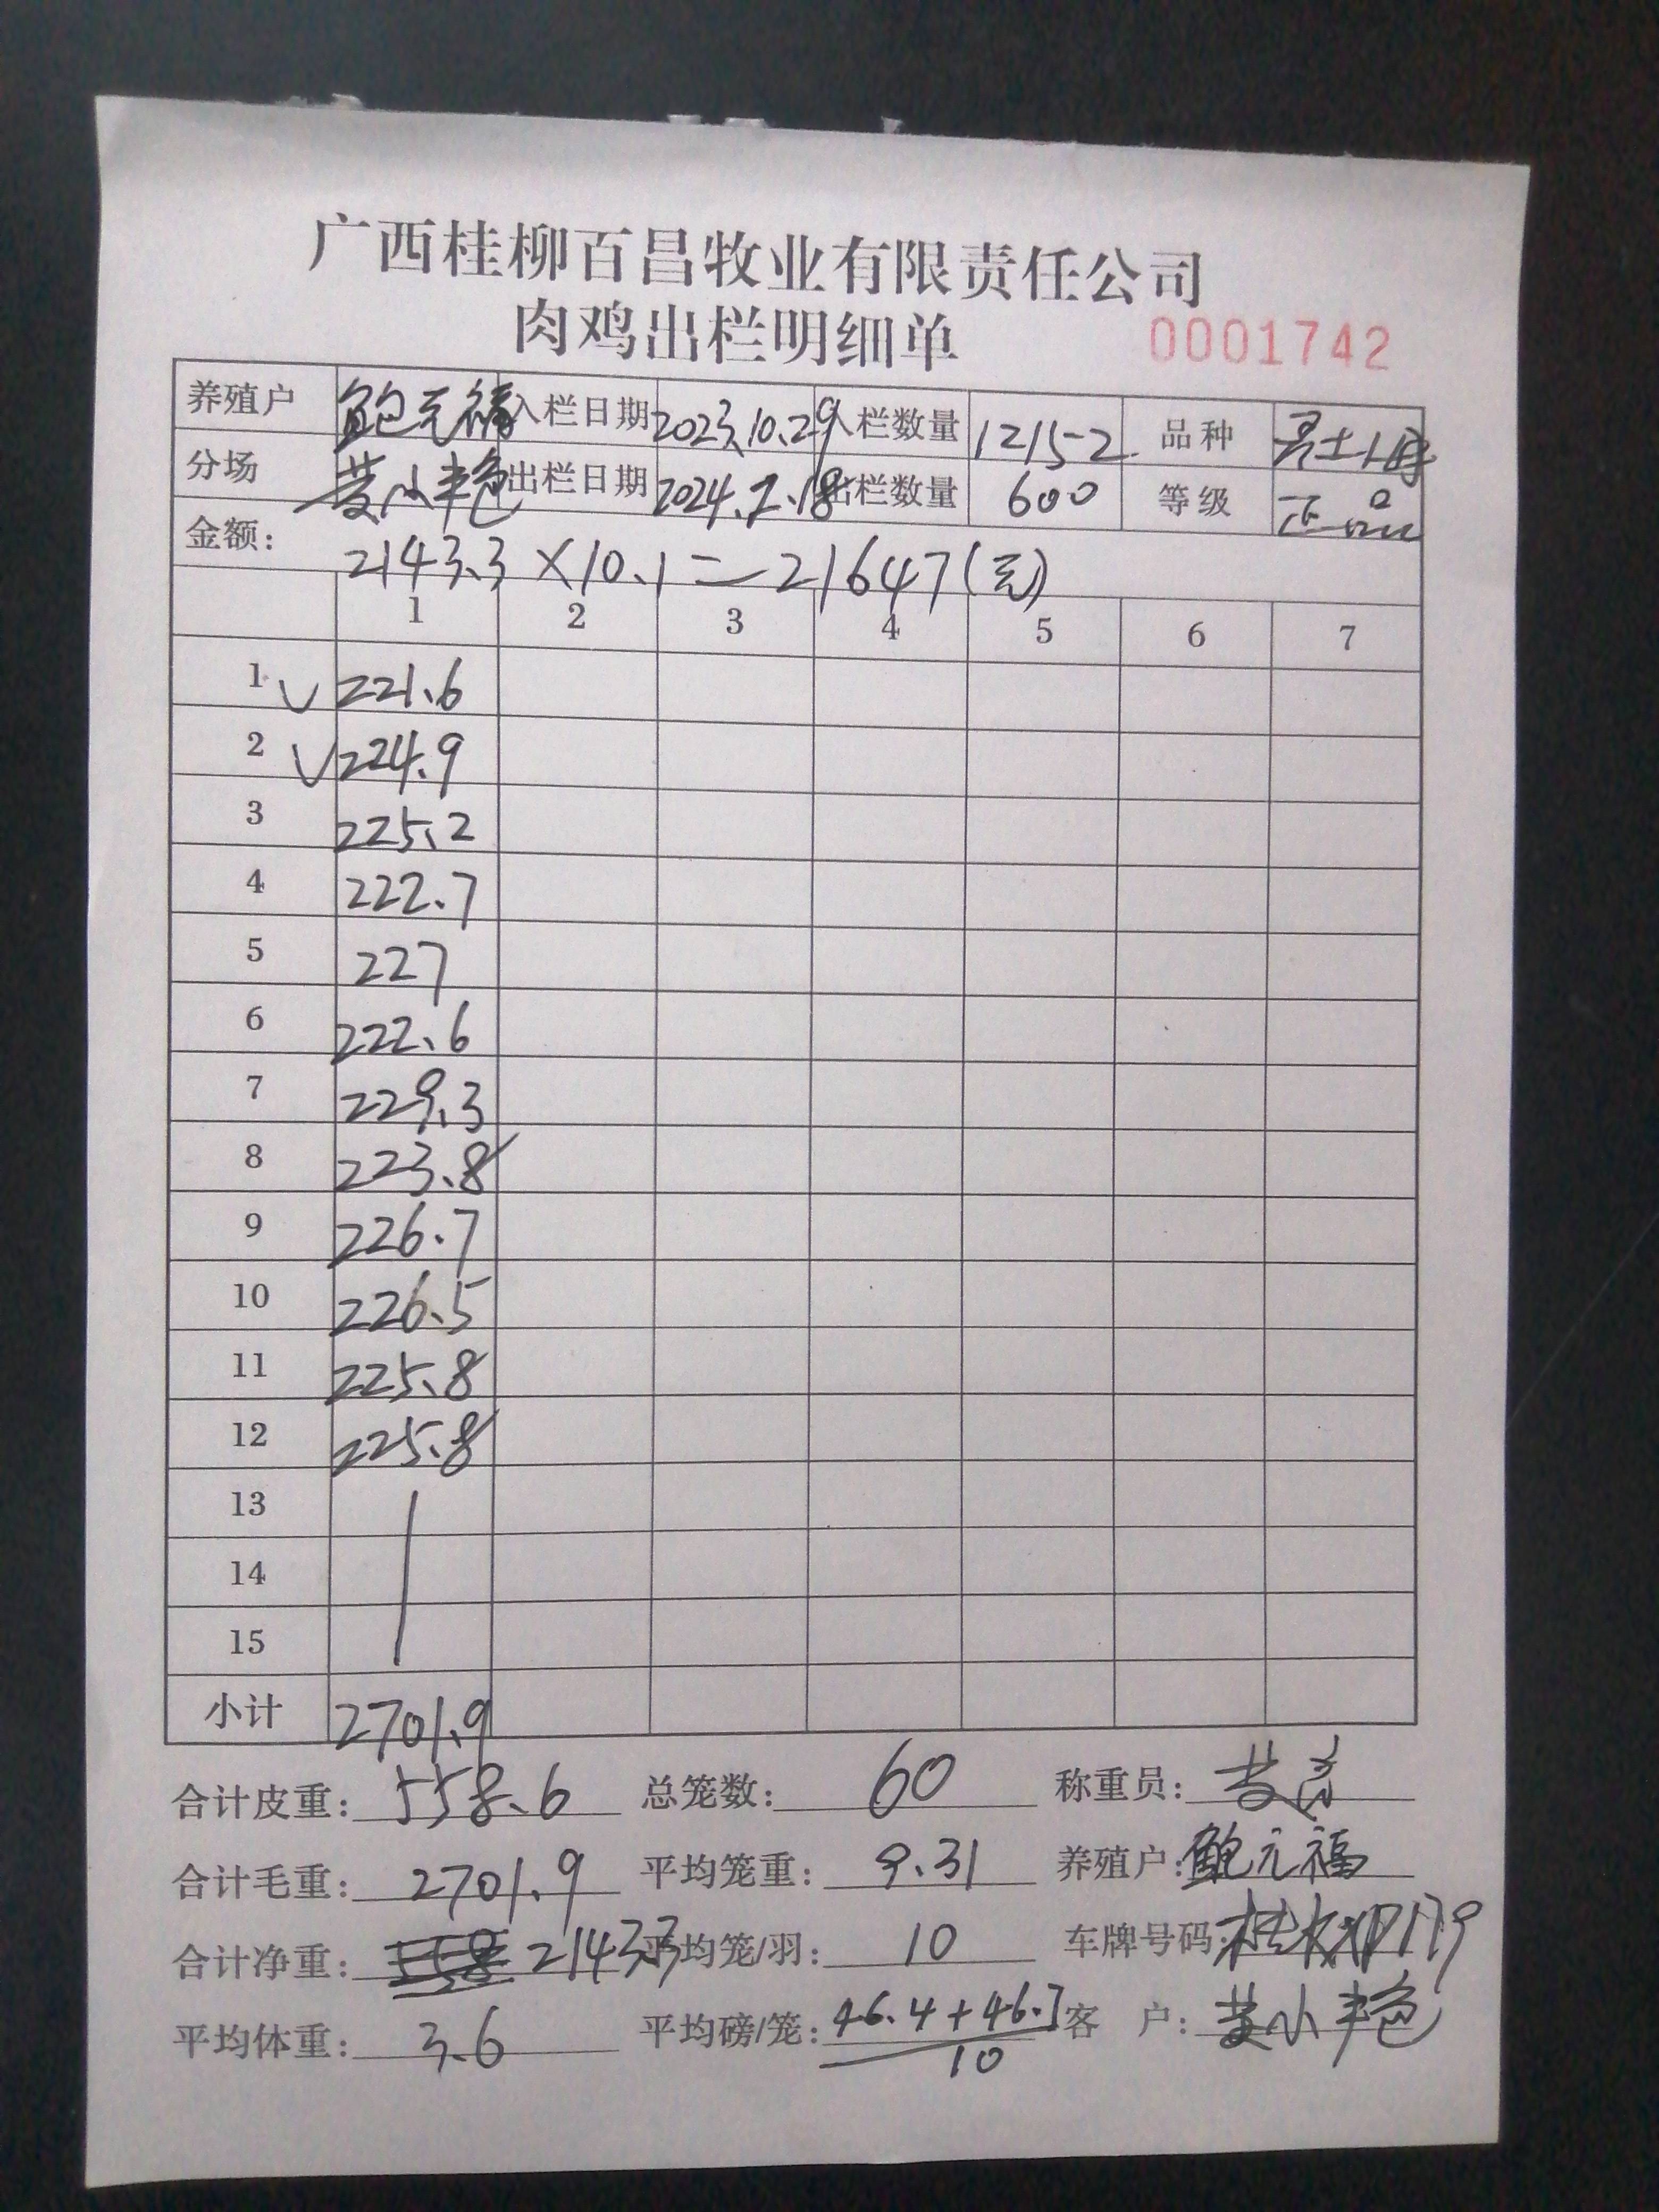 广西桂柳百昌牧业有限责任公司
肉鸡出栏明细单 0001742
养殖户 鲍元福 入栏日期 2023.10.29 入栏数量 12152 品种
分场 黄小艳 出栏日期 2024.2.18 出栏数量 600 等级 正品
金额: 2143.3×10.1=21647(元)
1 2 3 4 5 6 7
1 221.6
2 224.9
3 225.2
4 222.7
5 227
6 222.6
7 229.3
8 223.8
9 226.7
10 226.5
11 225.8
12 225.8
13
14
15
小计 2701.9
合计皮重: 558.6 总笼数: 60 称重员:
合计毛重: 2701.9 平均笼重: 9.31 养殖户: 鲍元福
合计净重: 2143.3 平均笼/羽: 10 车牌号码:
平均体重: 3.6 平均磅/笼: 46.4+46.7 客 户: 黄小艳
10